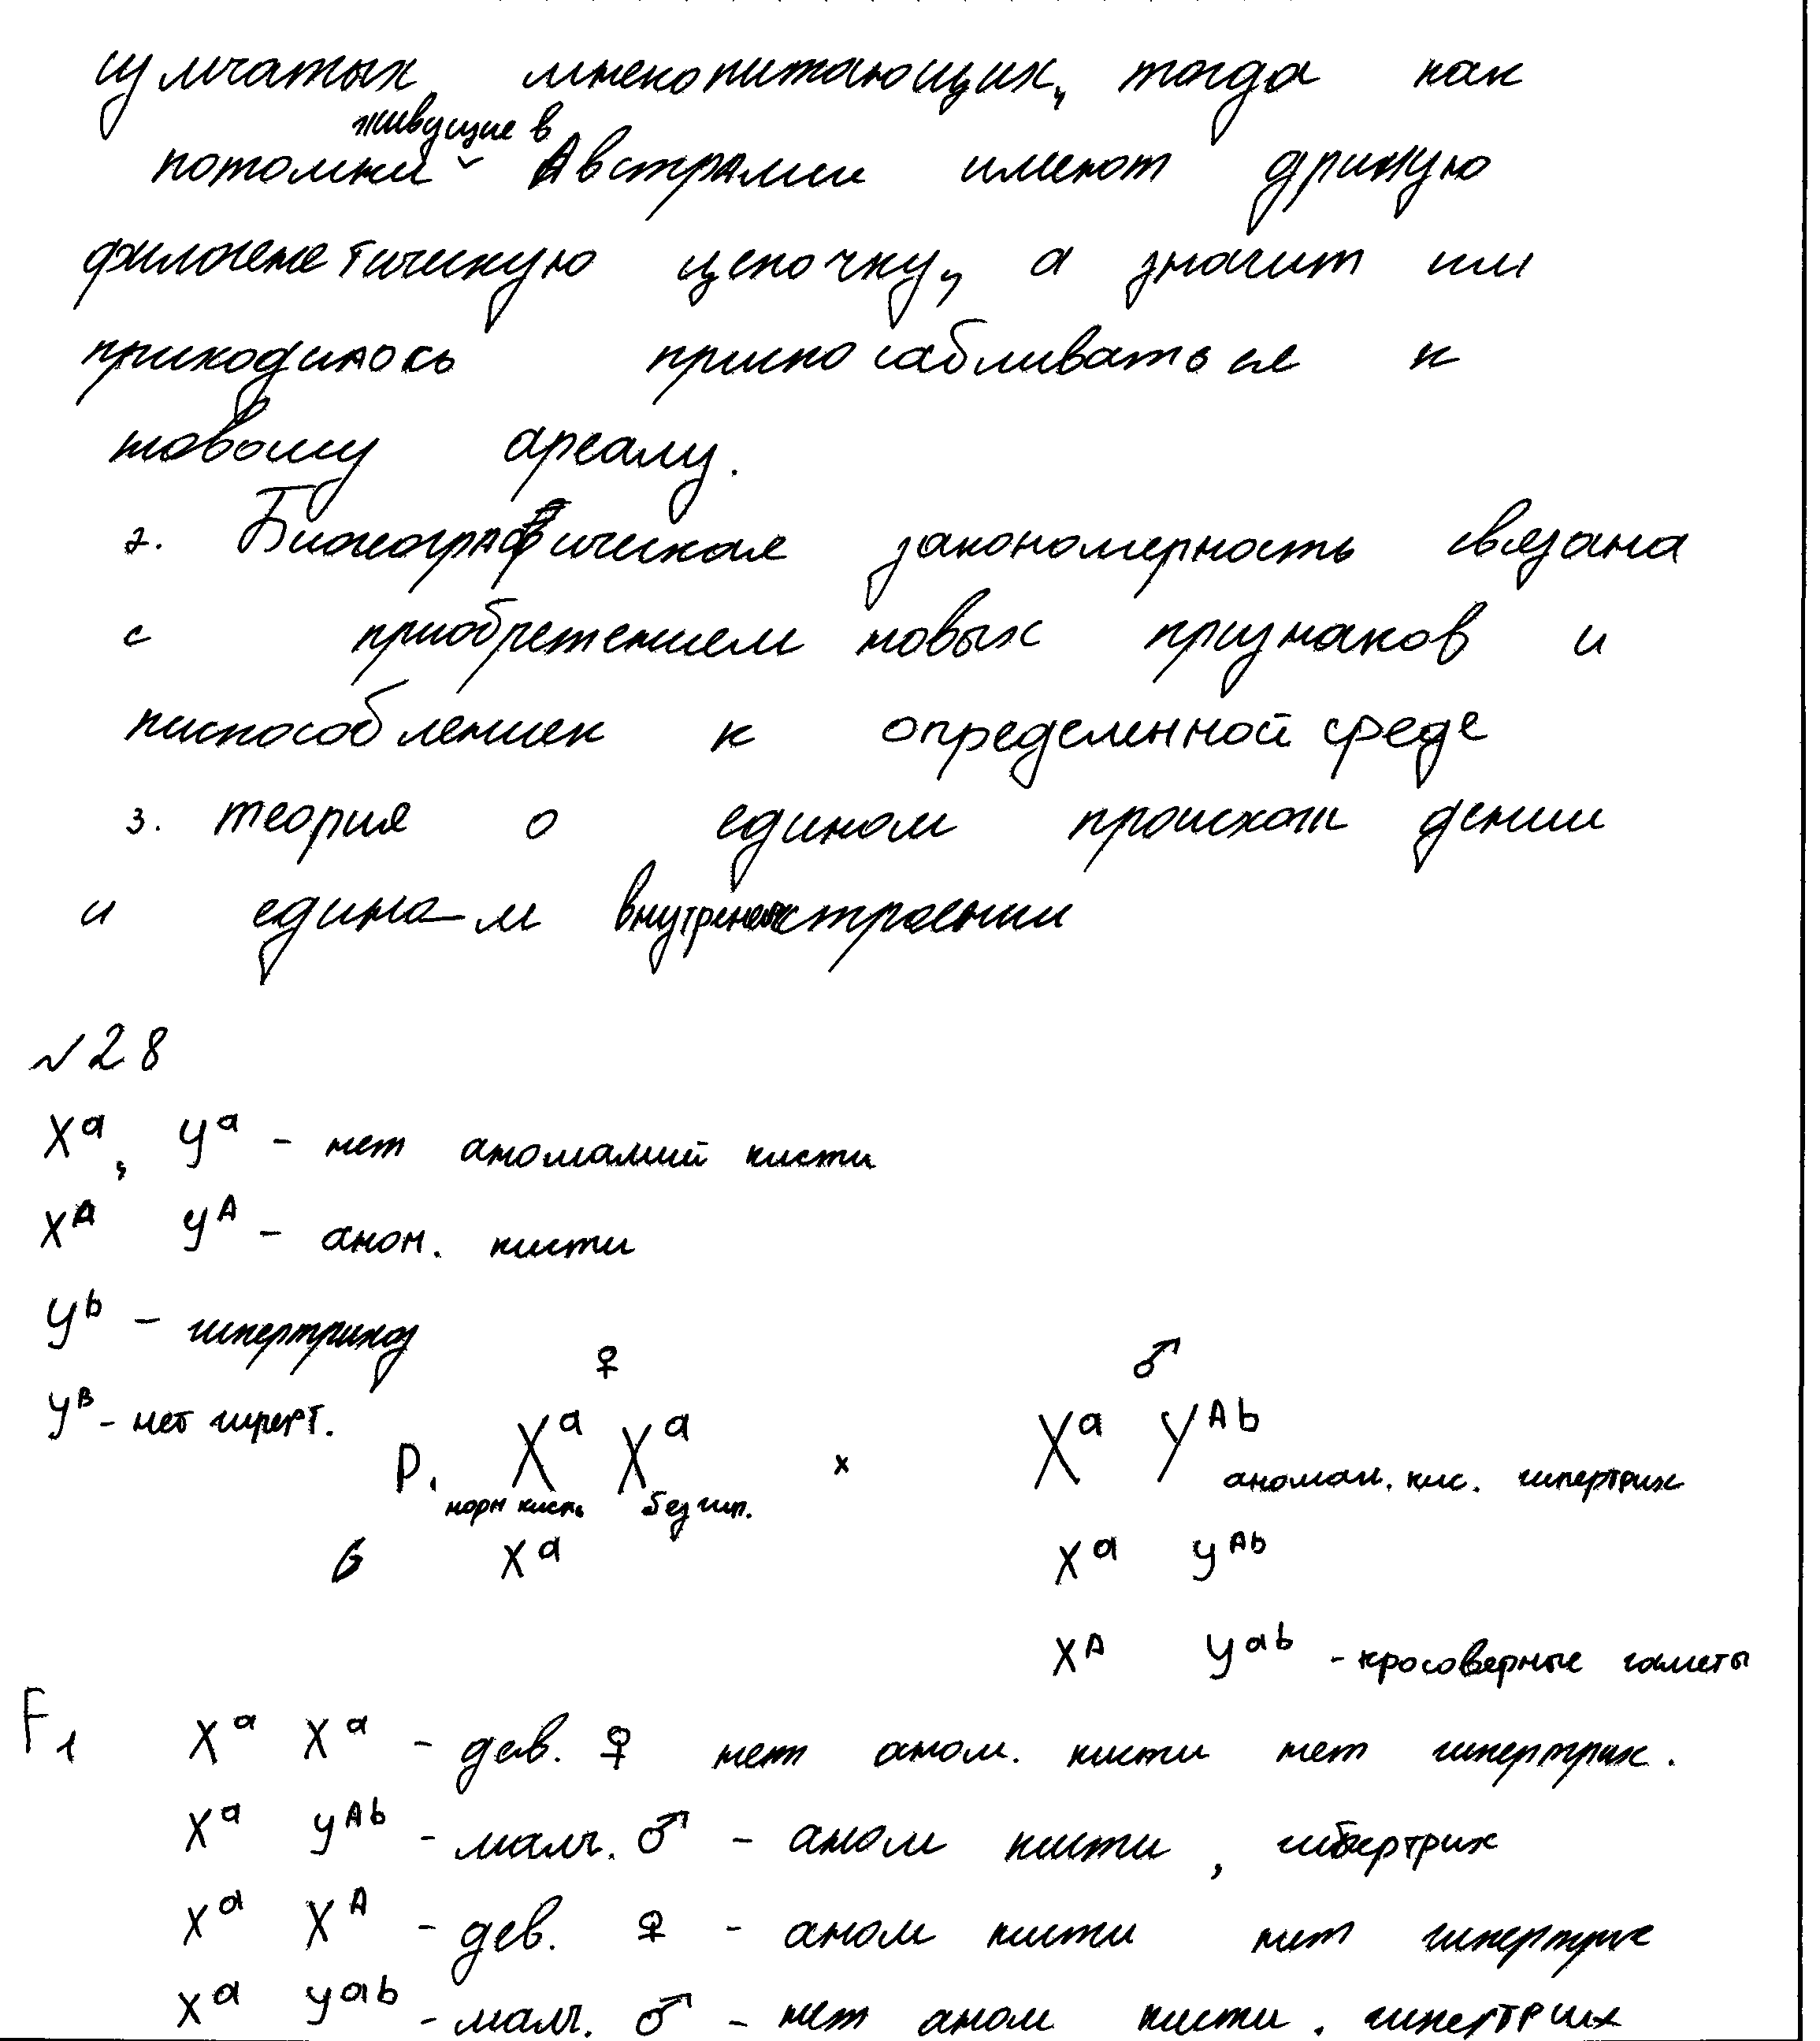 сумчатых млекопитающих, тогда как
живущие в
потомки Австралии имеют другую
филогенетическую цепочку, а значит им
приходилось приспосабливаться к
новому ареалу.
2. Биогеографическая закономерность связана
с приобретением новых признаков и
писпособлениек к определенной среде
3. теория о едином происхождении
и едином внутренем строении
№28
Xᵃ, Yᵃ - нет аномалий кисти
Xᴬ Yᴬ - аном. кисти
Yᵇ - гипертрихоз
Yᴮ - нет гиперт.
♀ ♂
P. Xᵃ Xᵃ x Xᵃ Yᴬᵇ
норм кисть без гип. аномал. кис. гипертрих
G Xᵃ Xᵃ Yᴬᵇ
Xᴬ Yᵃᵇ - кросоверные гаметы
F₁ Xᵃ Xᵃ - дев. ♀ нет аном. кисти нет гипертрих.
Xᵃ Yᴬᵇ - мальч. ♂ - аном кисти, гипертрих
Xᵃ Xᴬ - дев. ♀ - аном кисти нет гипертрих
Xᵃ Yᵃᵇ - мальч. ♂ - нет аном кисти, гипертрих